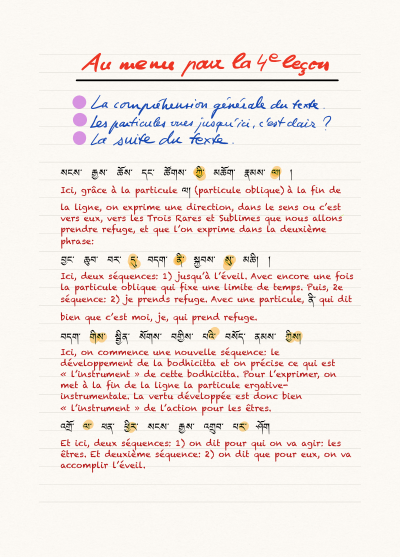 Au menu pour la 4e leçon
La compréhension générale du texte.
Les particules vues jusqu'ici, c'est clair ?
La suite du texte.
སངས་ རྒྱས་ ཆོས་ དང་ ཚོགས་ ཀྱི་ མཆོག་ རྣམས་ ལ། །
Ici, grâce à la particule ལ། (particule oblique) à la fin de
la ligne, on exprime une direction, dans le sens ou c'est
vers eux, vers les Trois Rares et Sublimes que nous allons
prendre refuge, et que l'on exprime dans la deuxième
phrase:
བྱང་ ཆུབ་ བར་ དུ་ བདག་ ནི་ སྐྱབས་ སུ་ མཆི། །
Ici, deux séquences: 1) jusqu'à l'éveil. Avec encore une fois
la particule oblique qui fixe une limite de temps. Puis, 2e
séquence: 2) je prends refuge. Avec une particule, ནི qui dit
bien que c'est moi, je, qui prend refuge.
བདག་ གིས་ སྦྱིན་ སོགས་ བགྱིས་ པའི་ བསོད་ ནམས་ ཀྱིས།
Ici, on commence une nouvelle séquence: le
développement de la bodhicitta et on précise ce qui est
« l'instrument » de cette bodhicitta. Pour l'exprimer, on
met à la fin de la ligne la particule ergative-
instrumentale. La vertu développée est donc bien
« l'instrument » de l'action pour les êtres.
འགྲོ་ ལ་ ཕན་ ཕྱིར་ སངས་ རྒྱས་ འགྲུབ་ པར་ ཤོག
Et ici, deux séquences: 1) on dit pour qui on va agir: les
êtres. Et deuxième séquence: 2) on dit que pour eux, on va
accomplir l'éveil.